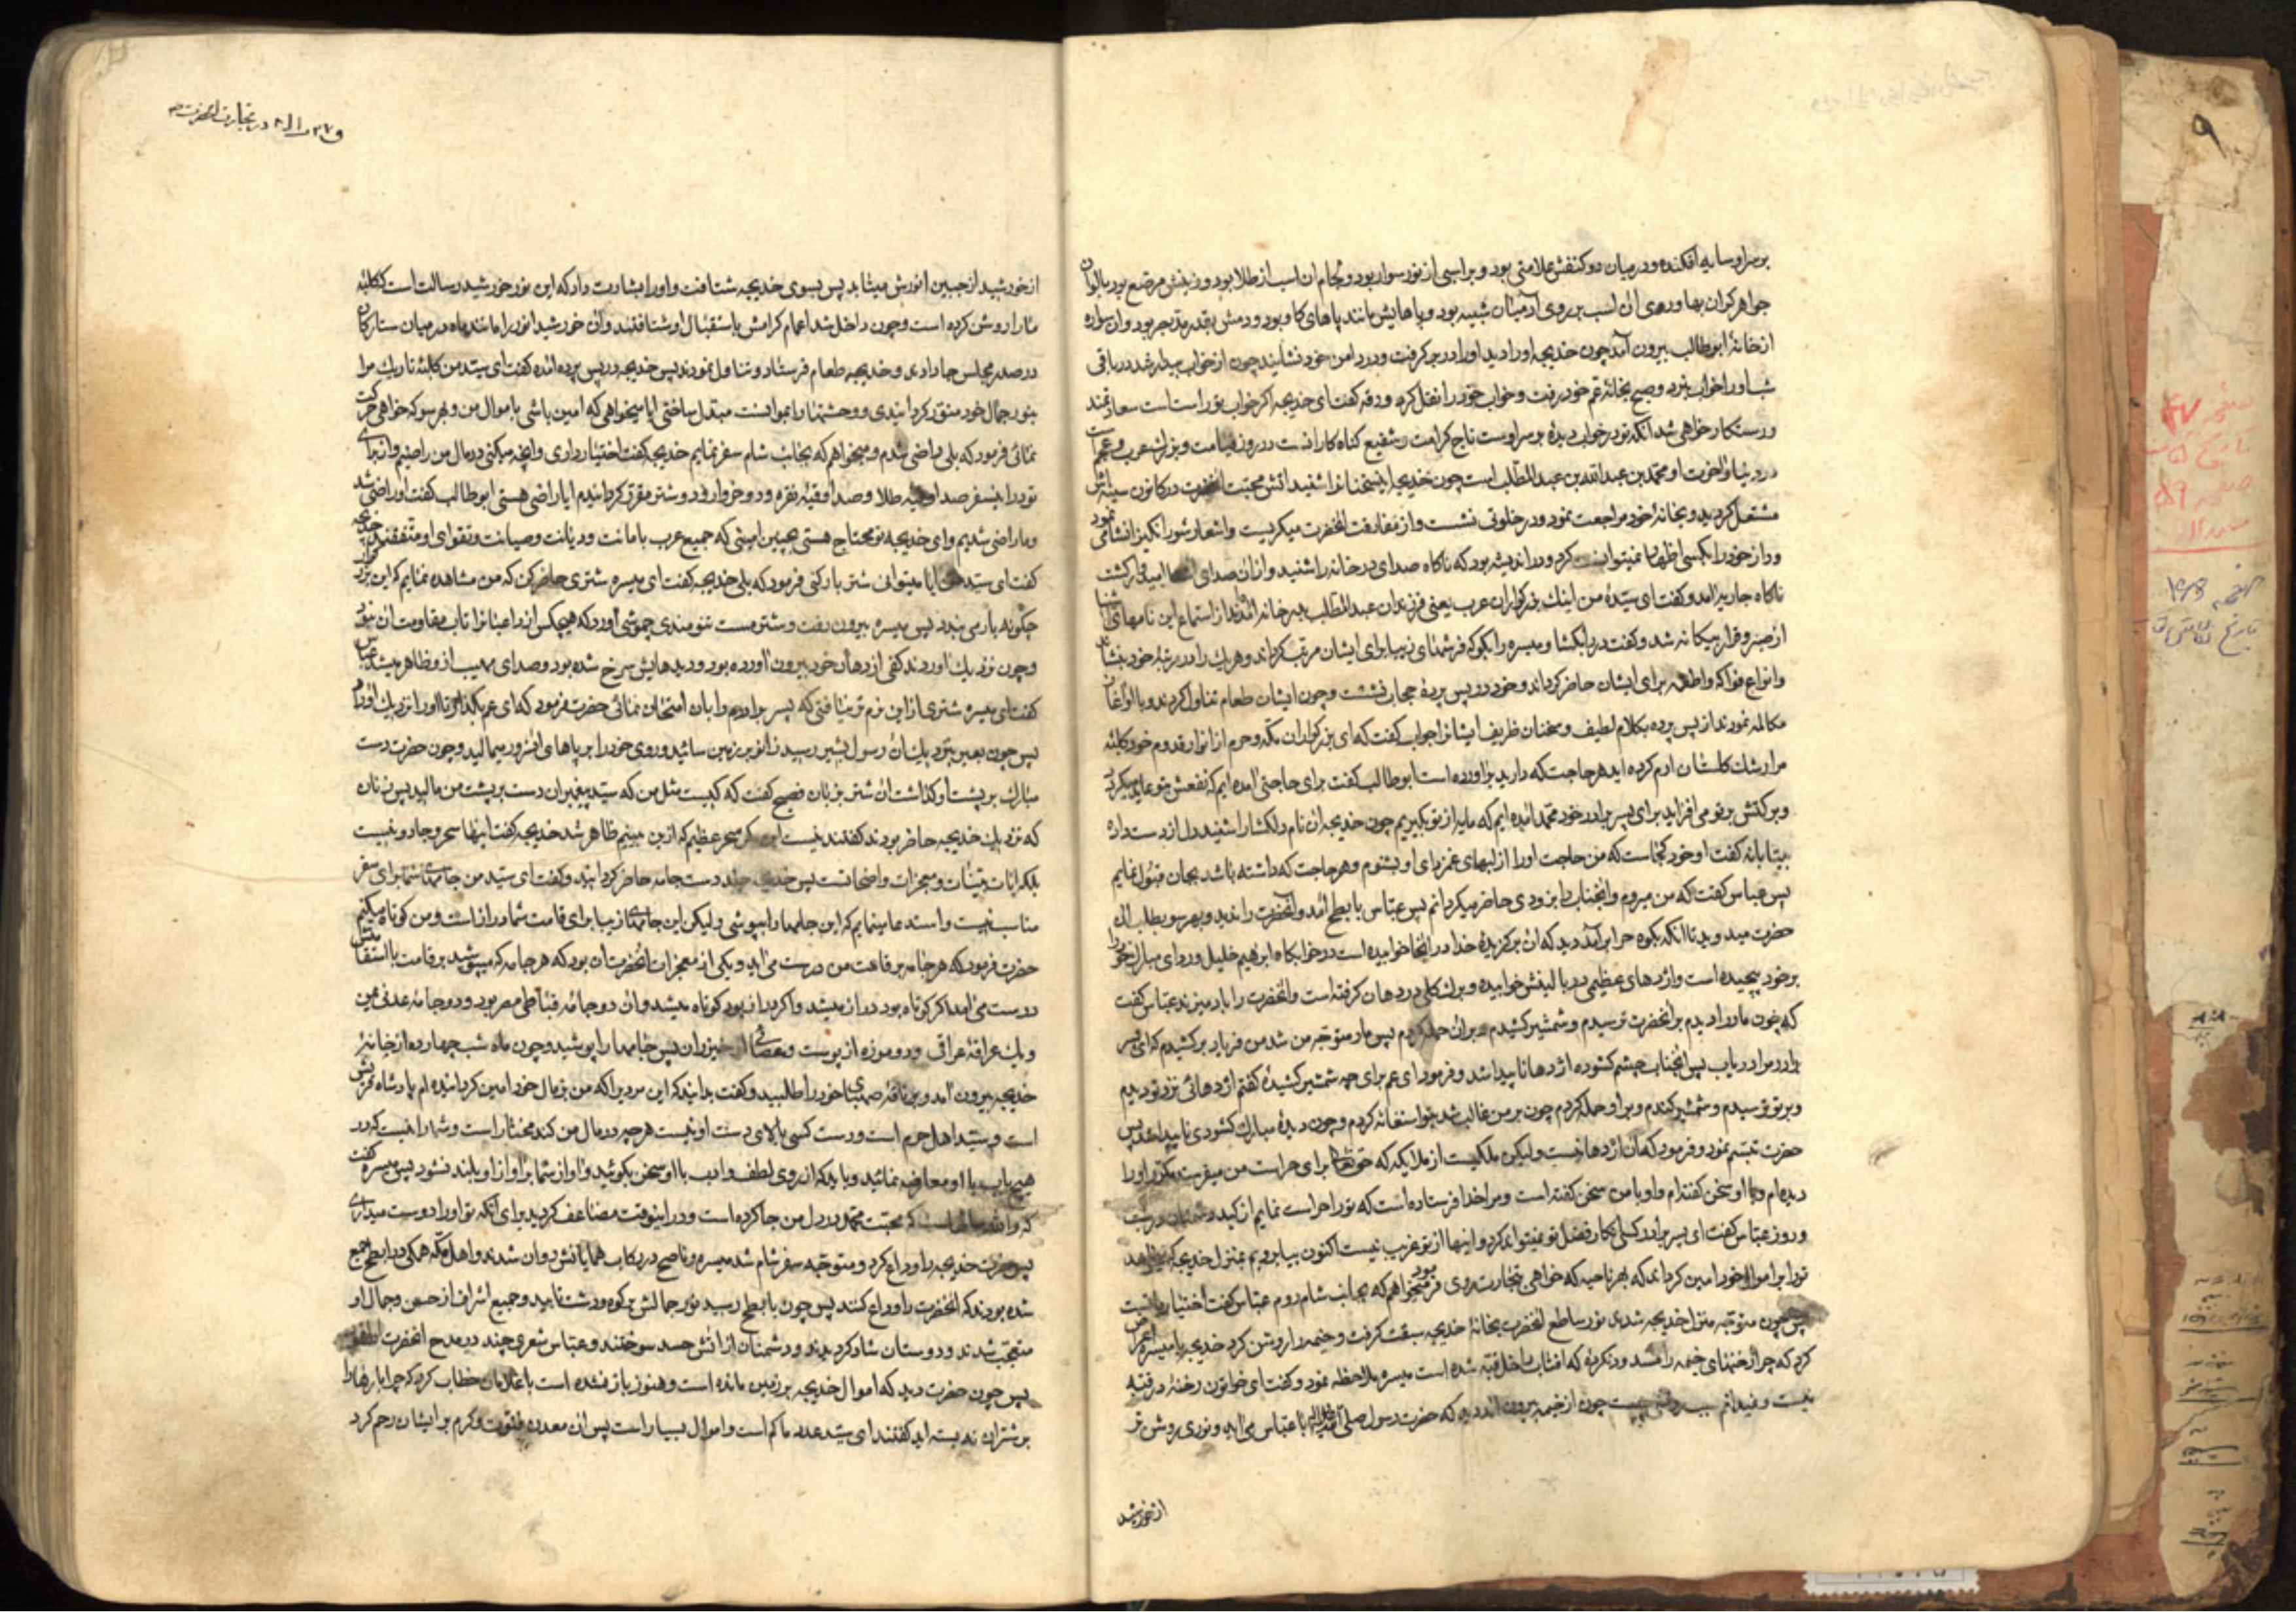 بر سر او سایه افکنده و در میان دو کتفش علامتی بود و بر اسبی از نور سوار بود و لجام ان اسب از طلا بود و زینش مرصع بود بالوان
جواهر کران بها و روی ان اسب بر روی آدمیان شبیه بود و پاهایش مانند پاهای کاو بود و دمش بقدر مد بصر بود و ان سواره
از خانهٔ ابو طالب بیرون آمد چون خدیجه او را دید او را در بر کرفت و در دامن خود نشانید چون از خواب بیدار شد در باقی
شب او را خواب نبرد و صبح بخانهٔ عم خود رفت و خواب خود را نقل کرد ورقه کفت ای خدیجه اکر خواب تو راست است سعادتمند
و رستکار خواهی شد انکه تو در خواب دیدهٔ بر سر اوست تاج کرامت شفیع کناه کارانست در روز قیامت و بزرك عرب و عجم است
در دنیا و اخرت او محمد بن عبدالله بن عبدالمطلب است چون خدیجه این سخنانرا شنید اتش محبت انحضرت در کانون سینه اش
مشتعل کردید و بخانهٔ خود مراجعت نمود و در خلوتی نشست و از مفارقت انحضرت میکریست و اشعار شور انکیز انشا می نمود
و راز خود را بکسی اظهار نمیتوانست کرد و در اندیشه بود که ناکاه صدای در خانه را شنید و از ان صدای
ناکاه جاریه آمد و کفت ای سیدهٔ من اینك بزرکواران عرب یعنی فرزندان عبدالمطلب بدر خانه آمدند از استماع این نامهای آشنا
از صبر و قرار بیکانه شد و کفت در را بکشا و میسره را بکو که فرشهای زیبا برای ایشان مرتب کرداند و هر یك را در مرتبهٔ خود بنشاند
و انواع فواکه و اطعمه برای ایشان حاضر کرداند و خود در پس پردهٔ حجاب نشست و چون ایشان طعام تناول کردند و با او آغاز
مکالمه نمودند از پس پرده بکلام لطیف و سخنان ظریف ایشانرا جواب کفت که ای بزرکواران مکه و حرم از انوار قدوم خود کلبهٔ
مرا رشك کلستان ارم کرده اید هر حاجت که دارید براورده است ابو طالب کفت برای حاجتی آمده ایم که نفعش بتو عاید میکردد
و برکتش بر تو می افزاید برای پسر برادر خود محمد آمده ایم که مایه از تو بکیریم چون خدیجه ان نام دلکشا را شنید دل از دست داده
بیتابانه کفت او خود کجاست که من حاجت او را از لبهای غمزدای او بشنوم و هر حاجت که داشته باشد بجان قبول نمایم
پس عباس کفت که من میروم و انجناب را بزودی حاضر میکردانم پس عباس بابطح آمد و انحضرت را ندید و بهر سو بطلب ان
حضرت میدوید تا انکه بکوه حرا بر آمد دید که ان بر کزیدهٔ خدا در انجا خوابیده است در خوابکاه ابرهیم خلیل و ردای مبارك خود را
بر خود پیچیده است و اژدهای عظیمی در بالینش خوابیده و برك کلی در دهان کرفته است و انحضرت را باد میزند عباس کفت
که چون مار را دیدم بر انحضرت ترسیدم و شمشیر کشیدم و بر ان حمله کردم پس مار متوجه من شد من فریاد بر کشیدم که ای پسر
برادر مرا در یاب پس انجناب چشم کشوده اژدها ناپیدا شد و فرمود ای عم برای چه شمشیر کشیدهٔ کفتم اژدهائی نزد تو دیدم
و بر تو ترسیدم و شمشیر کندم و بر او حمله کردم چون بر من غالب شد بتو استغاثه کردم و چون دیدهٔ مبارك کشودی ناپیدا شد پس
حضرت تبسم نمود و فرمود که ان اژدها نیست ولیکن ملکیست از ملایکه که حق تعالی برای حراست من میفرستد مکرر او را
دیده ام و با او سخن کفته ام و او با من سخن کفته است و مرا خدا فرستاده است که تو را حراست نمایم از کید دشمنان در شب
و روز عباس کفت ای پسر برادر کسی انکار فضل تو نمیتواند کرد و اینها از تو غریب نیست اکنون بیا برویم بمنزل خدیجه که میخواهد
تو را بر اموال خود امین کرداند که بهر ناحیه که خواهی بتجارت روی فرمود میخواهم که بجانب شام روم عباس کفت اختیار با تست
پس چون متوجه منزل خدیجه شدند نور ساطع انحضرت بخانهٔ خدیجه سبقت کرفت و خیمه را روشن کرد خدیجه با میسره اعراض
کرد که چرا رخنهای خیمه را مسدود نکردهٔ که افتاب داخل قبه شده است میسره ملاحظه نمود و کفت ای خواتون رخنهٔ در قبه
نیست و نمیدانم سبب روشنی چیست چون از خیمه بیرون آمد دید که حضرت رسول صلی الله علیه و اله با عباس می اید و نوری روشن تر
از خورشید
ق ۲۷ در تجارت انحضرت
از خورشید از جبین انورش میتابد پس بسوی خدیجه شتافت و او را بشارت داد که این نور خورشید رسالت است که کلبهٔ
مارا روشن کرده است و چون داخل شد اعمام کرامش باستقبال او شتافتند و ان خورشید انور را مانند ماه در میان ستارکان
در صدر مجلس جا دادند و خدیجه طعام فرستاد و تناول نمودند پس خدیجه در پس پرده آمده کفت ای سید من کلبهٔ تاریك مرا
بنور جمال خود منور کردانیدی و وحشتها را بموانست مبدل ساختی ایا میخواهی که امین باشی باموال من و بهر سو که خواهی حرکت
نمائی فرمود که بلی راضی شدم و میخواهم که بجانب شام سفر نمایم خدیجه کفت اختیار داری و انچه میکنی در مال من راضیم و از برای
تو در این سفر صد اوقیه طلا و صد اوقیه نقره و دو خروار و دو شتر مقرر کردانیدم ایا راضی هستی ابو طالب کفت او راضی شد
و ما راضی شدیم و ای خدیجه تو محتاج هستی بچنین امینی که جمیع عرب بامانت و دیانت و صیانت و تقوای او متفقند خدیجه
کفت ای سید من ایا میتوانی شتر بار کنی فرمود که بلی خدیجه کفت ای میسره شتری حاضر کن که من مشاهده نمایم که این بزرکوار
چکونه بار می بندد پس میسره بیرون رفت و شتر مست تنومندی چموشی آورد که هیچکس از راعیانرا تاب مقاومت ان نبود
و چون نزدیك آوردند کفی از دهان خود بیرون آورده بود و دیدهایش سرخ شده بود و صدای مهیب از و ظاهر میشد عباس
کفت ای میسره شتری از این نرم تر نیافتی که پسر برادرم را بان امتحان نمائی حضرت فرمود که ای عم بکذار تا او را نزدیك آورند
پس چون بعیر بنزدیك ان رسول بشیر رسید زانو بر زمین سائید و روی خود را بر پاهای انسرور میمالید و چون حضرت دست
مبارك بر پشت او کذاشت ان شتر بزبان فصیح کفت که کیست مثل من که سید پیغمبران دست بر پشت من مالید پس زنان
که نزدیك خدیجه حاضر بودند کفتند نیست این مکر سحر عظیم که ازین یتیم ظاهر شد خدیجه کفت اینها سحر و جادو نیست
بلکه ایات بینات و معجزات واضحاتست پس خدیجه چند دست جامه حاضر کردانید و کفت ای سید من جامهای شما برای سفر
مناسب نیست و استدعا مینمایم که این جامها را بپوشی ولیکن این جامهای زیبا برای قامت شما دراز است و من کوتاه میکنم
حضرت فرمود که هر جامه بر قامت من درست می اید و یکی از معجزات انحضرت ان بود که هر جامه که میپوشید بر قامت با استقامتش
درست می آمد اکر کوتاه بود دراز میشد و اکر دراز بود کوتاه میشد و ان دو جامهٔ قباطی مصر بود و دو جامهٔ عدنی یمن
و یك عراقهٔ عراقی و دو موزه از پوست و عصائی از خیزران پس جامها را پوشید و چون ماه شب چهارده از خانهٔ
خدیجه بیرون آمد و بر ناقهٔ صهبای خود را طلبید و کفت بدانید که این مرد را که من بر مال خود امین کردانیده ام پادشاه قریش
است و سید اهل حرم است و دست کسی بالای دست او نیست هر چه در مال من کند مختار است و شما را نیست که در
هیچ باب با او معارضه نمائید و باید که از روی لطف و ادب با او سخن بکوئید و اواز شما بر اواز او بلند نشود پس میسره کفت
که والله سالها است که محبت محمد در دل من جا کرده است و در اینوقت مضاعف کردید برای انکه تو او را دوست میداری
پس حضرت خدیجه را وداع کرد و متوجه سفر شام شد میسره و ناصح در رکاب همایانش روان شدند و اهل مکه همکی در ابطح جمع
شده بودند که انحضرت را وداع کنند پس چون بابطح رسید نور جمالش بر کوه و دشت تابید و جمیع اشراف از حسن و جمال او
متعجب شدند و دوستان شاد کردیدند و دشمنان از اتش حسد سوختند و عباس شعری چند در مدح انحضرت
پس چون حضرت دید که اموال خدیجه بر زمین مانده است و هنوز بار نشده است با غلامان خطاب کرد که چرا بارها را
بر شتران نه بسته اید کفتند ای سید عدد ما کم است و اموال بسیار است پس ان معدن فتوت و کرم بر ایشان رحم کرد
۹